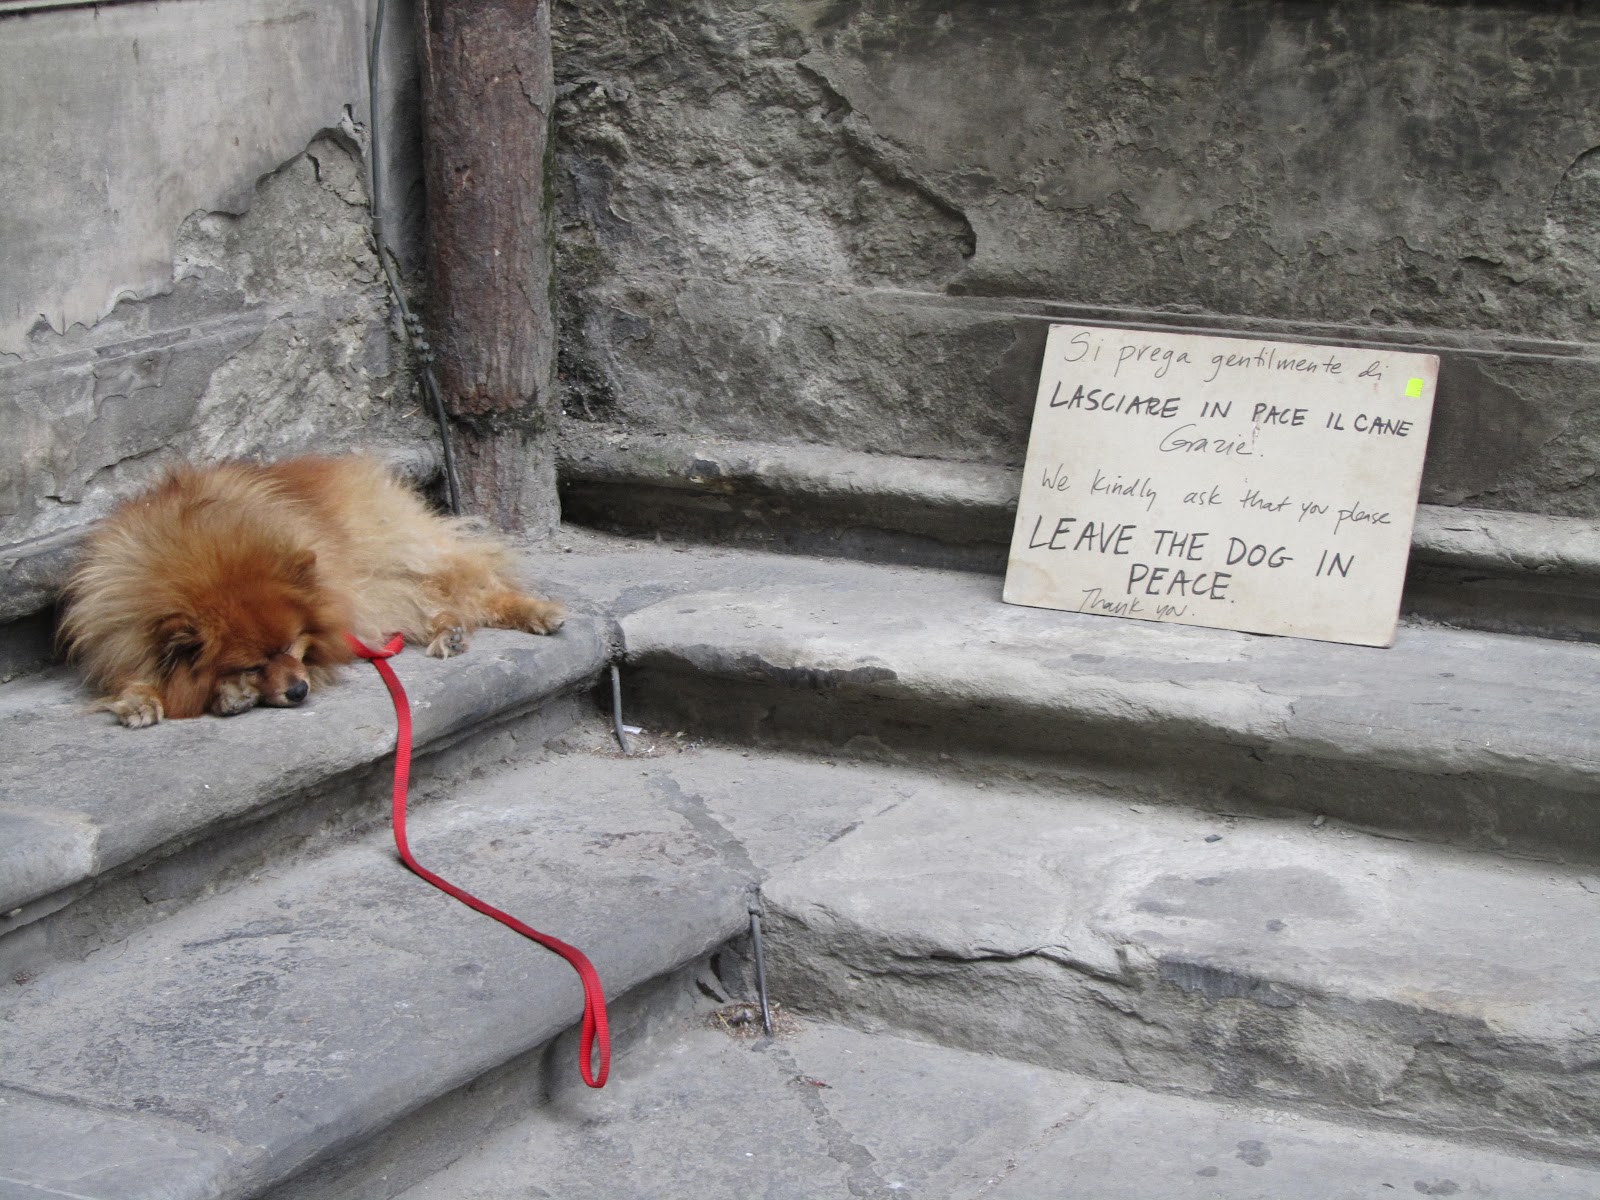 Si prega gentilmente di
LASCIARE IN PACE IL CANE
Grazie!
We kindly ask that you please
LEAVE THE DOG IN
PEACE.
Thank you.